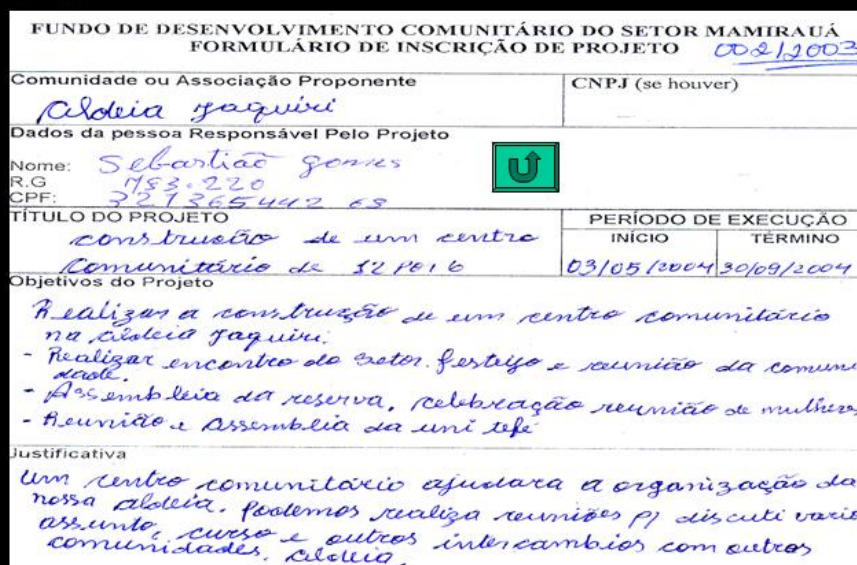 FUNDO DE DESENVOLVIMENTO COMUNITÁRIO DO SETOR MAMIRAUÁ
FORMULÁRIO DE INSCRIÇÃO DE PROJETO 002/2003
Comunidade ou Associação Proponente
CNPJ (se houver)
Aldeia Jaquiri
Dados da pessoa Responsável Pelo Projeto
Nome: Sebastião Gomes
R.G
CPF:
TÍTULO DO PROJETO
PERÍODO DE EXECUÇÃO
INÍCIO TÉRMINO
construção de um centro
Comunitário de 12 por 6
03/05/2004 30/09/2004
Objetivos do Projeto
Realizar a construção de um centro comunitário
na aldeia Jaquiri.
- Realizar encontro do setor. festejo e reunião da comuni
dade.
- Assembleia da reserva, celebração reunião de mulheres
- Reunião e Assemblia da uni tefé
Justificativa
Um centro comunitário ajudara a organização da
nossa aldeia. podemos realiza reuniões p/ discuti vario
assunto, curso e outros intercambios com outros
comunidades, aldeia.